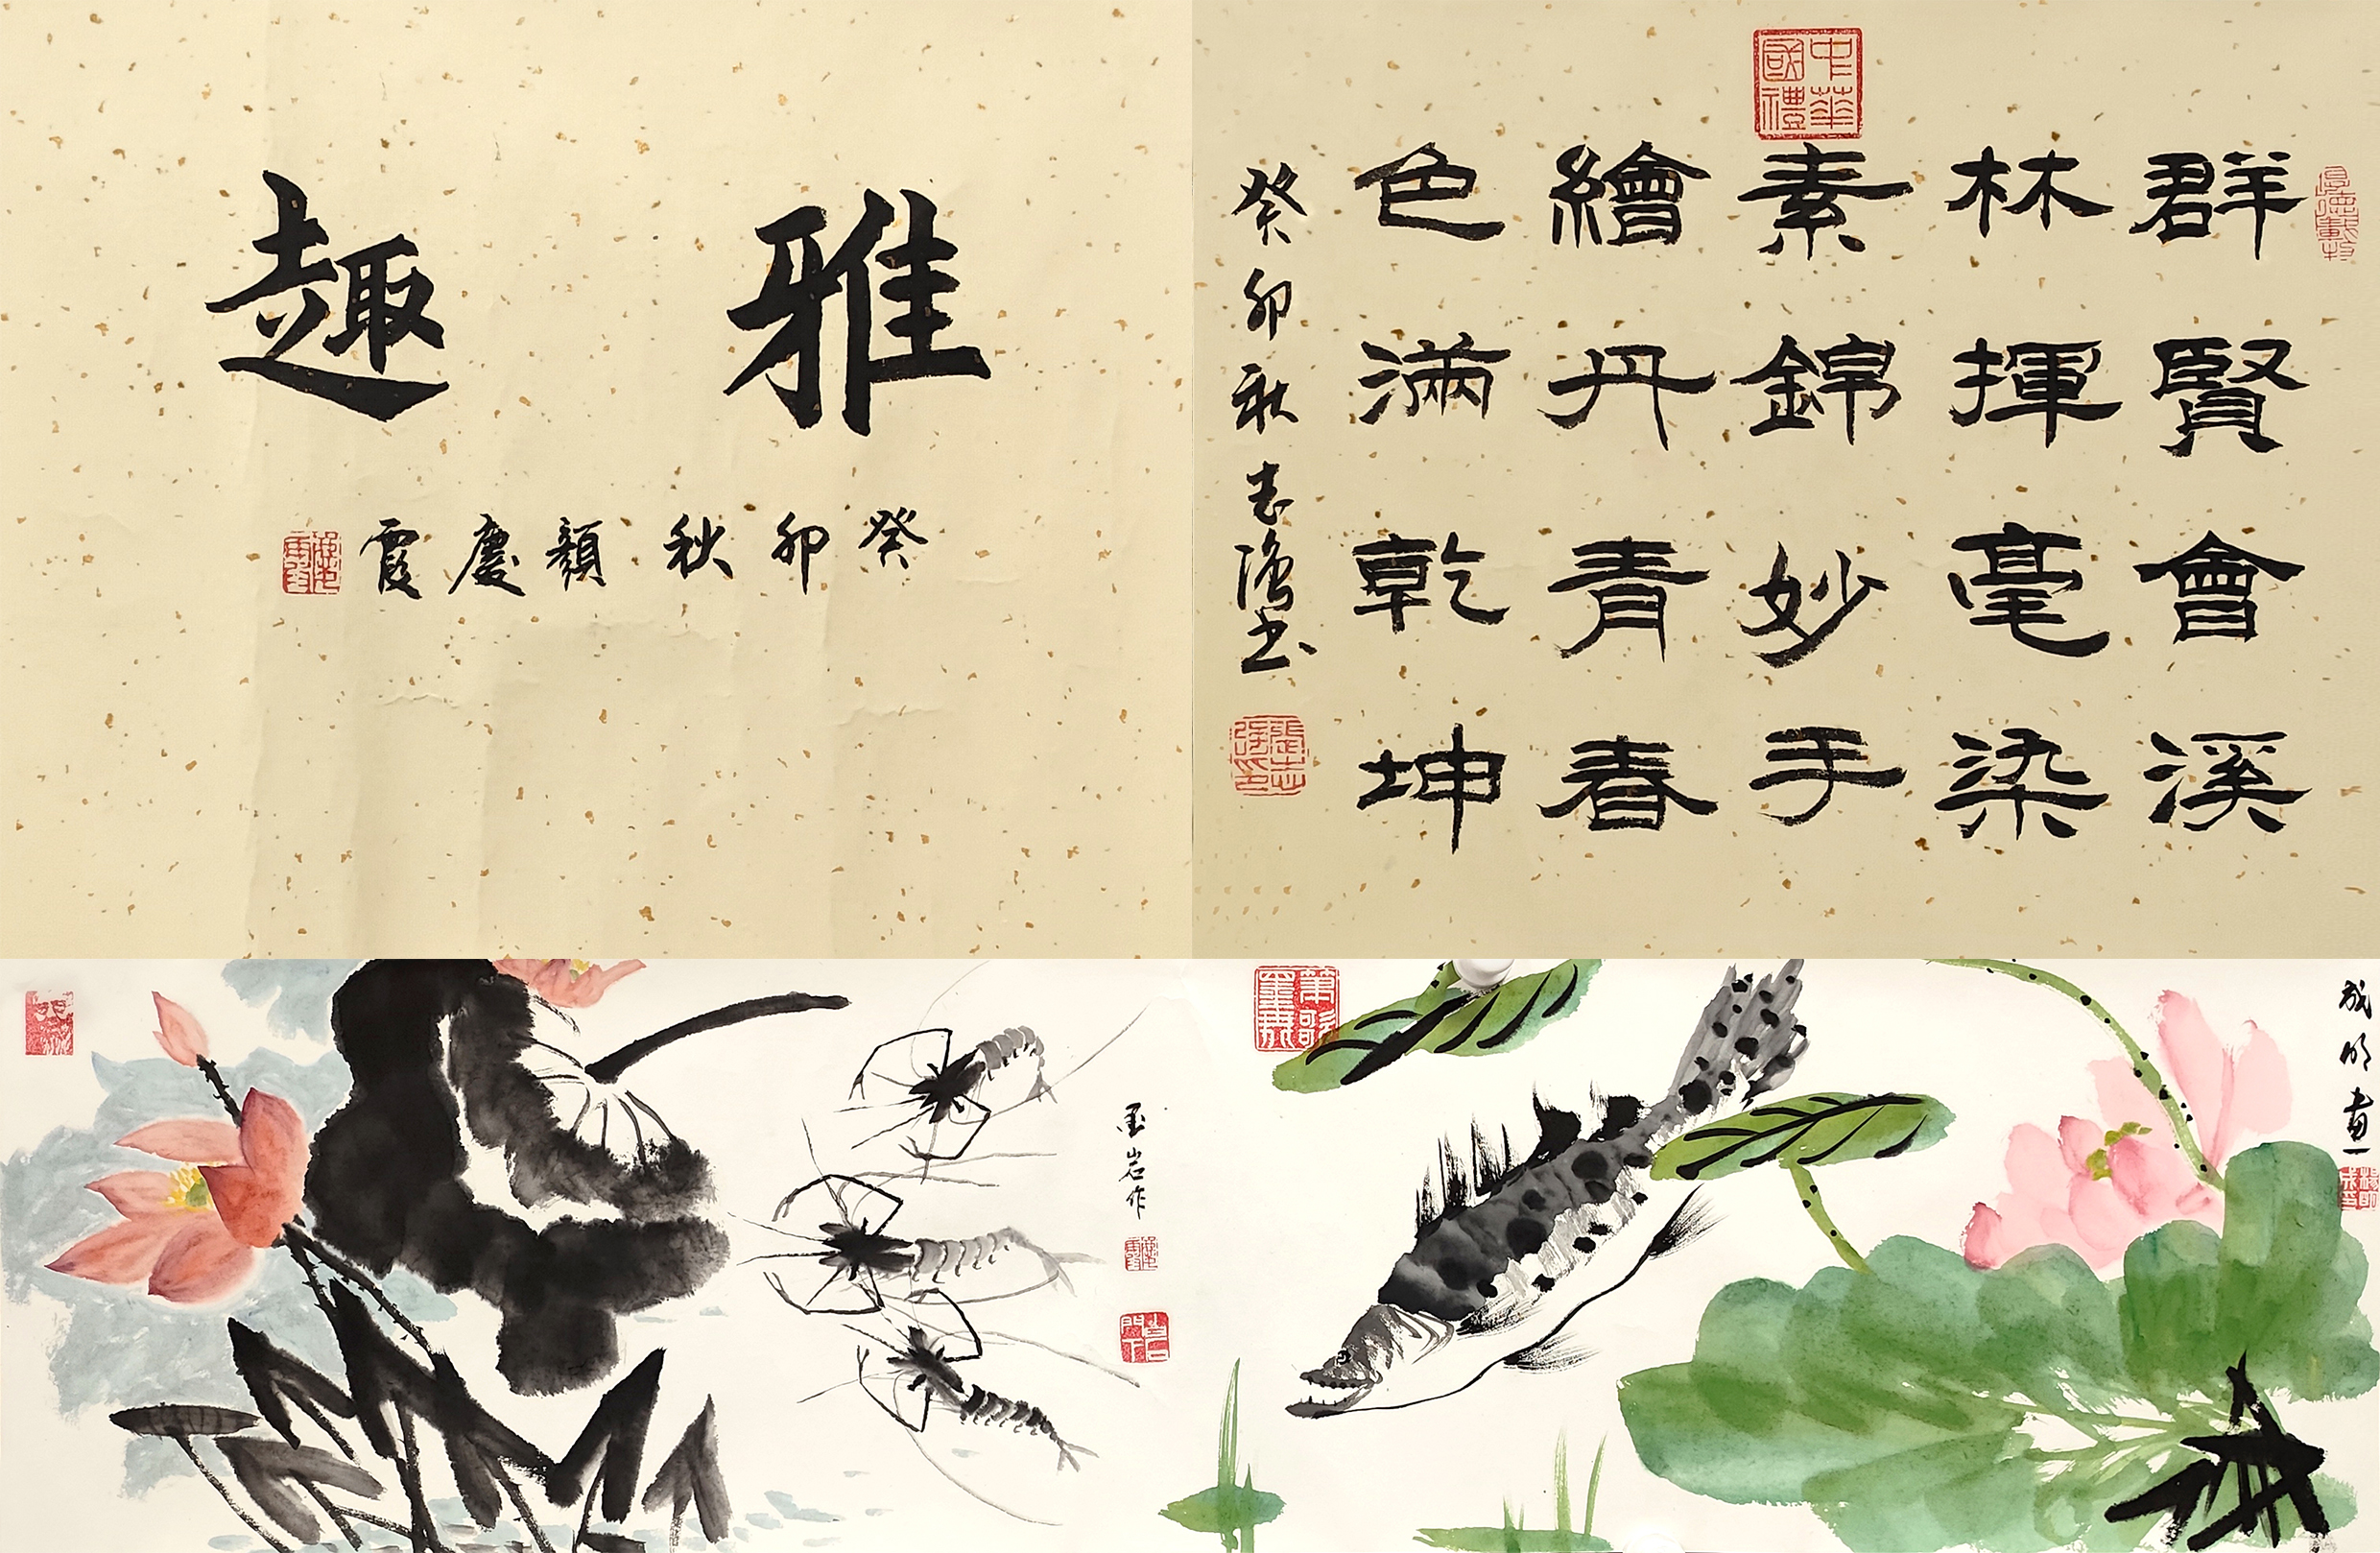 雅趣
癸卯秋顏慶霞
中華國禮
厚德載物
群賢會溪
林揮毫染
素錦妙手
繪丹青春
色滿乾坤
癸卯秋志強书
墨岩作
成明畫